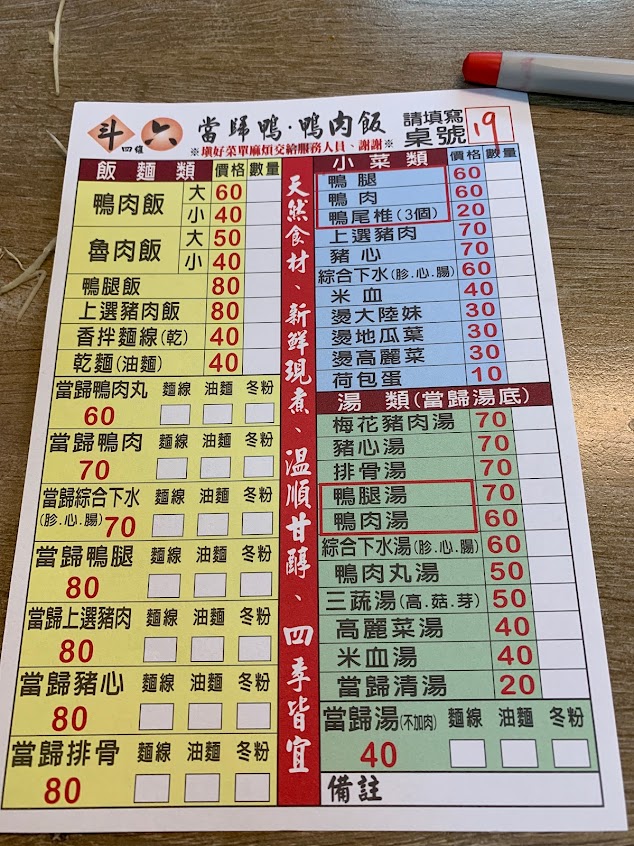 斗六
四維
當歸鴨·鴨肉飯
※填好菜單麻煩交給服務人員、謝謝※
請填寫
桌號 19
飯麵類 價格 數量
鴨肉飯 大 60
小 40
魯肉飯 大 50
小 40
鴨腿飯 80
上選豬肉飯 80
香拌麵線(乾) 40
乾麵(油麵) 40
當歸鴨肉丸 麵線 油麵 冬粉
60
當歸鴨肉 麵線 油麵 冬粉
70
當歸綜合下水 麵線 油麵 冬粉
(胗.心.腸) 70
當歸鴨腿 麵線 油麵 冬粉
80
當歸上選豬肉 麵線 油麵 冬粉
80
當歸豬心 麵線 油麵 冬粉
80
當歸排骨 麵線 油麵 冬粉
80
天然食材、新鮮現煮、溫順甘醇、四季皆宜
小菜類 價格 數量
鴨腿 60
鴨肉 60
鴨尾椎(3個) 20
上選豬肉 70
豬心 70
綜合下水(胗.心.腸) 60
米血 40
燙大陸妹 30
燙地瓜葉 30
燙高麗菜 30
荷包蛋 10
湯類(當歸湯底)
梅花豬肉湯 70
豬心湯 70
排骨湯 70
鴨腿湯 70
鴨肉湯 60
綜合下水湯(胗.心.腸) 60
鴨肉丸湯 50
三蔬湯(高.菇.芽) 50
高麗菜湯 40
米血湯 40
當歸清湯 20
當歸湯(不加肉) 麵線 油麵 冬粉
40
備註